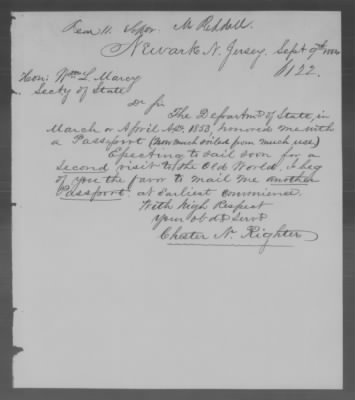 Newark N. Jersey, Sept 9th
122.
Hon: Wm L. Marcy
Secty of State
Dr Sir
The Departmt of State, in
March or April A.D. 1853, honored me with
a Passport (now much soiled from much use)
Expecting to sail soon for a
second visit to the Old World, I beg
of you the favor to mail me another
Passport at Earliest convenience.
With High Respect
Your Obdt Servt
Chester N. Righter